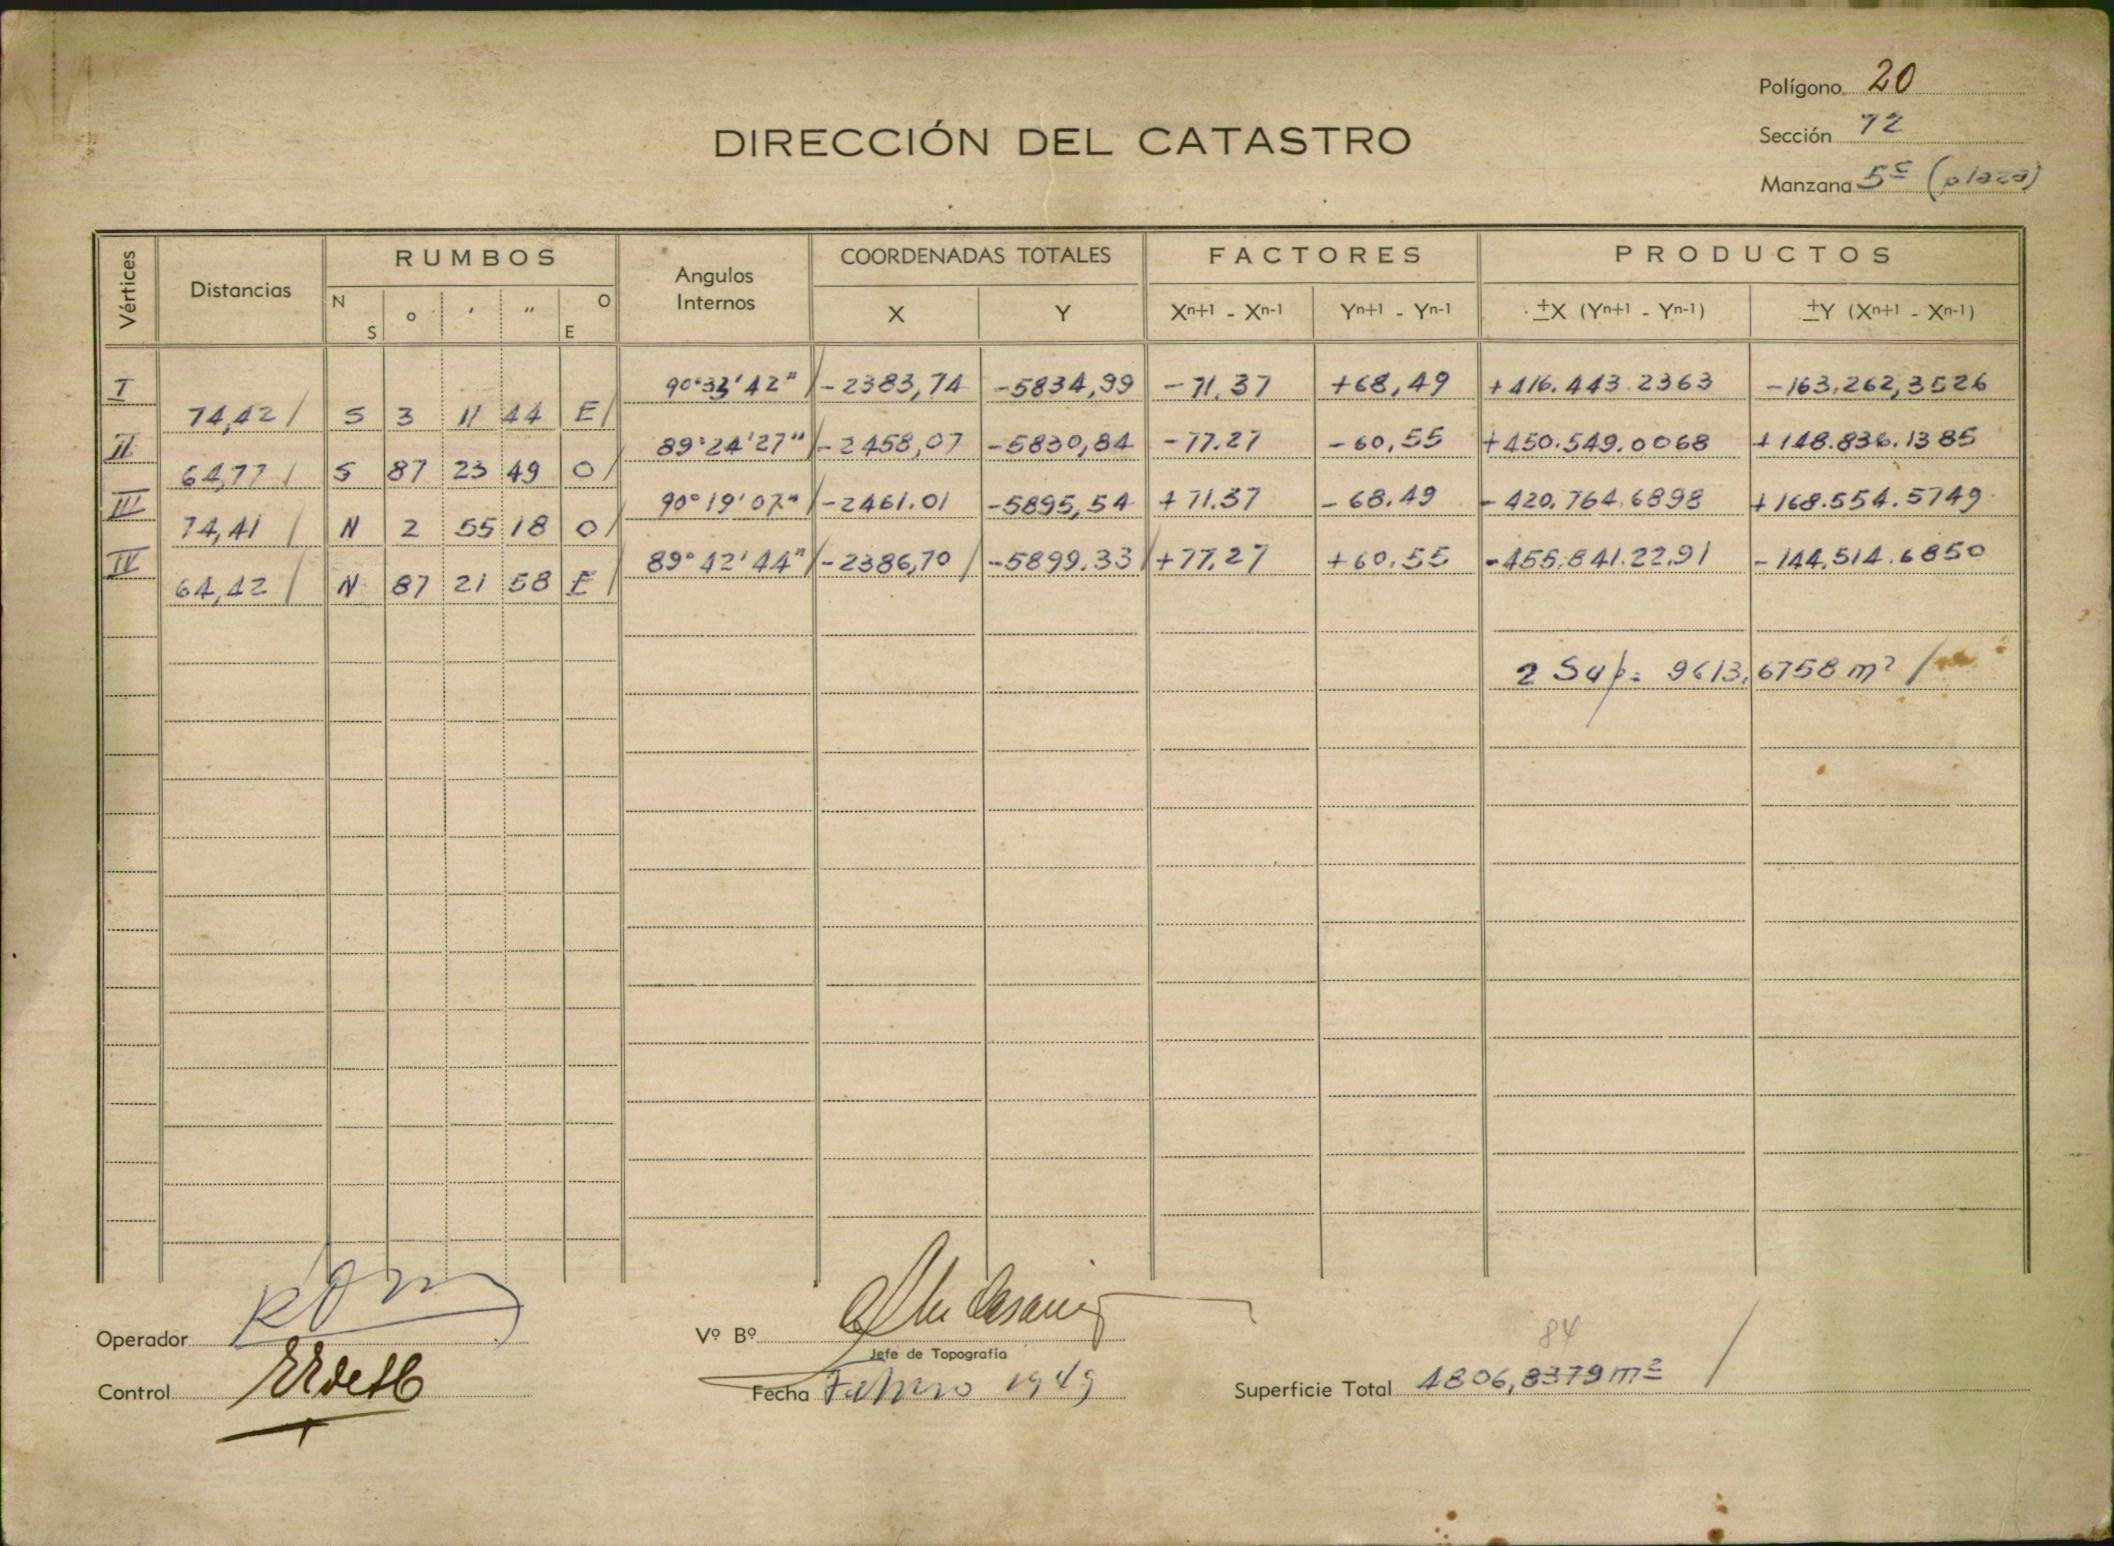 Polígono 20
DIRECCIÓN DEL CATASTRO
Sección 72
Manzana 5c (plaza)
Vértices Distancias RUMBOS Angulos Internos COORDENADAS TOTALES FACTORES PRODUCTOS
N S o ' " O E X Y Xn+1 - Xn-1 Yn+1 - Yn-1 ±X (Yn+1 - Yn-1) ±Y (Xn+1 - Xn-1)
I 90°33'42" -2383,74 -5834,99 -71,37 +68,49 +416.443.2363 -163.262,3526
74,42 S 3 11 44 E
II 89°24'27" -2458,07 -5830,84 -77.27 -60,55 +450.549.0068 +148.836.1385
64,77 S 87 23 49 O
III 90°19'07" -2461.01 -5895,54 +71.37 -68.49 -420.764.6898 +168.554.5749
74,41 N 2 55 18 O
IV 89°42'44" -2386,70 -5899.33 +77.27 +60.55 -455.841.2291 -144.514.6850
64,42 N 87 21 58 E
2 Sup. 9613,6758 m²
Operador
Vº Bº
Jefe de Topografía
84
Control
Fecha Febrero 1949
Superficie Total 4806,8379 m²